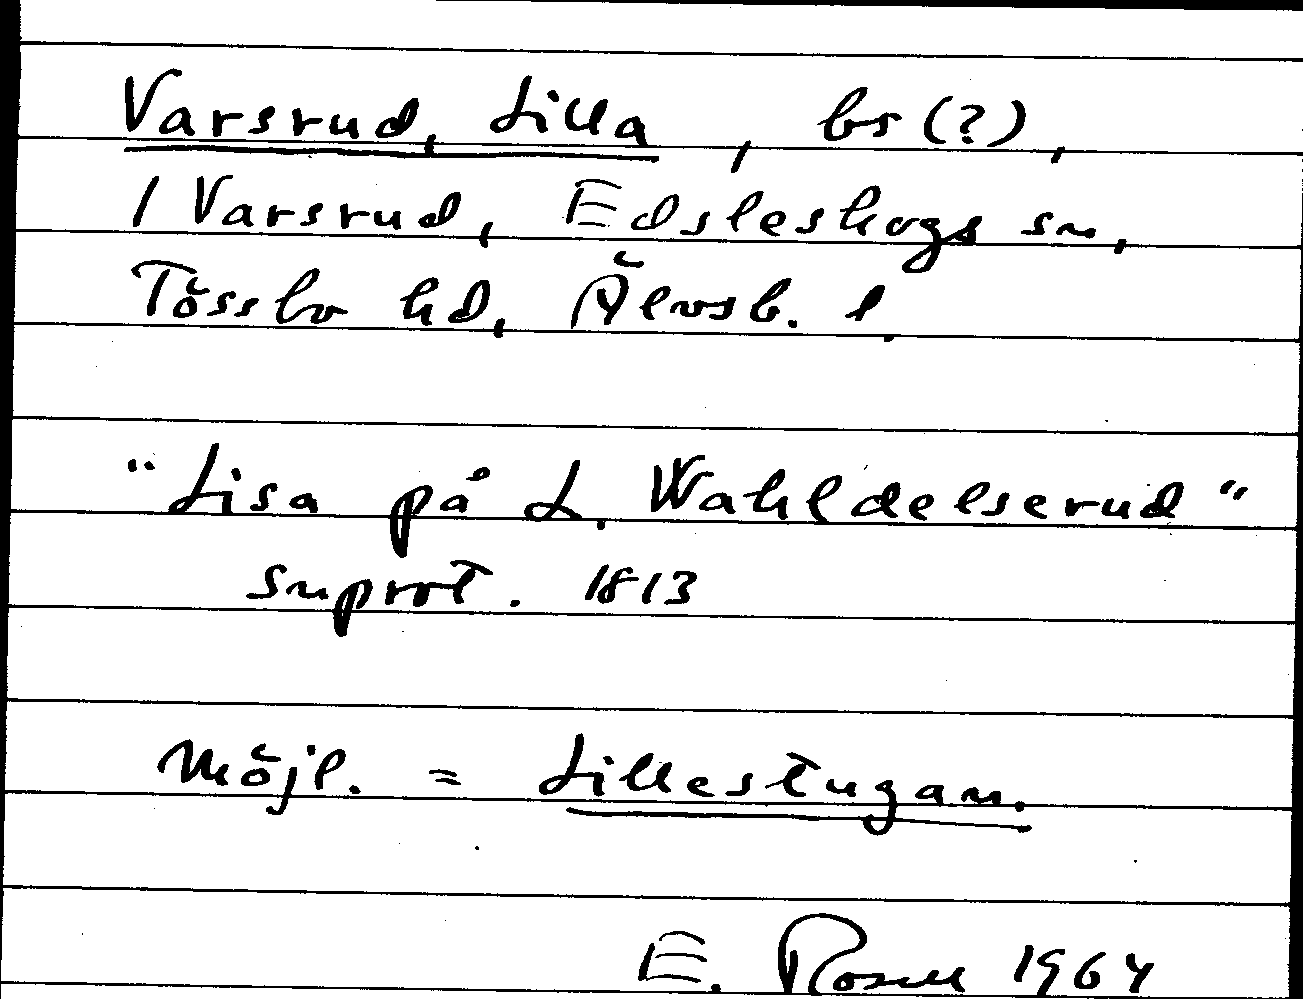 Varsrud, Lilla, bs (?),
/ Varsrud, Edsleskogs sn,
Tössbo hd, Älvsb. l.
"Lisa på L. Wahldelserud"
Snprot. 1813
Möjl. = Lillestugan.
E. Rosell 1964